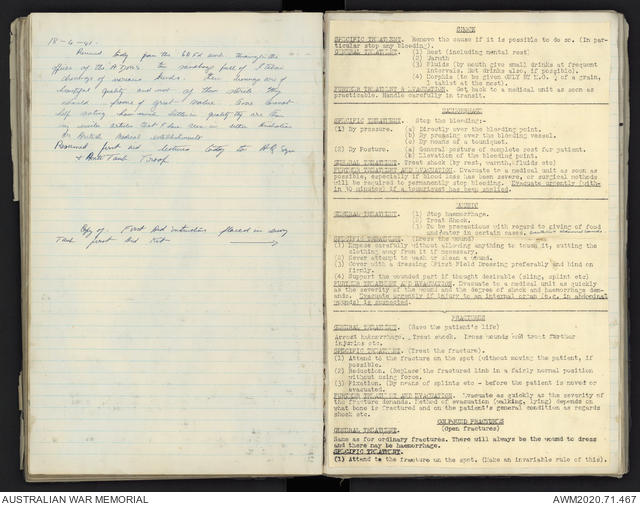 18-6-41.
Received today from the 66 Fd through the
office of the A.D.M.S. two sandbags full of Italian
dressings of various kinds. These dressings are of
beautiful quality and most of them sterile. They
should prove of great value. One cannot
help noting how more better in quality they are than
similar articles that I have seen in either Australian
or British medical establishments.
Resumed first aid lectures today to HQ Sqn
& Anti Tank Troop
Copy of First Aid instruction placed in every
Tank first Aid Kit
SHOCK
SPECIFIC TREATMENT. Remove the cause if it is possible to do so. (In par-
ticular stop any bleeding).
GENERAL TREATMENT. (1) Rest (including mental rest)
(2) Warmth
(3) Fluids (by mouth give small drinks at frequent
intervals. Hot drinks also, if possible).
(4) Morphia (to be given ONLY by M.O. ¼ of a grain,
1 tablet at the most).
FURTHER TREATMENT & EVACUATION. Get back to a medical unit as soon as
practicable. Handle carefully in transit.
HAEMORRHAGE
SPECIFIC TREATMENT. Stop the bleeding;-
(1) By pressure. (a) Directly over the bleeding point.
(b) By pressing over the bleeding vessel.
(c) By means of a tourniquet.
(2) By Posture. (a) General posture of complete rest for patient.
(b) Elevation of the bleeding point.
GENERAL TREATMENT. Treat shock (by rest, warmth, fluids etc)
FURTHER TREATMENT AND EVACUATION. Evacuate to a medical unit as soon as
possible, especially if blood loss has been severe, or surgical methods
will be required to permanently stop bleeding. Evacuate urgently (with-
in 30 minutes) if a tourniquet has been applied.
WOUNDS
GENERAL TREATMENT. (1) Stop haemorrhage.
(2) Treat Shock.
(3) To be precautious with regard to giving of food
and water in certain cases.
SPECIFIC TREATMENT. (Dress the wound)
(1) Expose carefully without allowing anything to touch it, cutting the
clothing away from it if necessary.
(2) Never attempt to wash or clean a wound.
(3) Cover with a dressing (First Field Dressing preferably and bind on
firmly.
(4) Support the wounded part if thought desirable (sling, splint etc)
FURTHER TREATMENT AND EVACUATION. Evacuate to a medical unit as quickly
as the severity of the wound and the degree of shock and haemorrhage dem-
ands. Evacuate urgently if injury to an internal organ (e.g. in abdominal
wounds) is suspected.
FRACTURES
GENERAL TREATMENT. (Save the patient's life)
Arrest haemorrhage. Treat shock. Dress wounds and treat further
injuries etc.
SPECIFIC TREATMENT. (Treat the fracture).
(1) Attend to the fracture on the spot (without moving the patient, if
possible.
(2) Reduction. (Replace the fractured limb in a fairly normal position
without using force.
(3) Fixation. (By means of splints etc - before the patient is moved or
evacuated.
FURTHER TREATMENT AND EVACUATION. Evacuate as quickly as the severity of
the fracture demands. Method of evacuation (walking, lying) depends on
what bone is fractured and on the patient's general condition as regards
shock etc.
COMPOUND FRACTURES
(Open fractures)
GENERAL TREATMENT.
Same as for ordinary fractures. There will always be the wound to dress
and there may be haemorrhage.
SPECIFIC TREATMENT.
(1) Attend to the fracture on the spot. (Make an invariable rule of this).
AUSTRALIAN WAR MEMORIAL
AWM2020.71.467